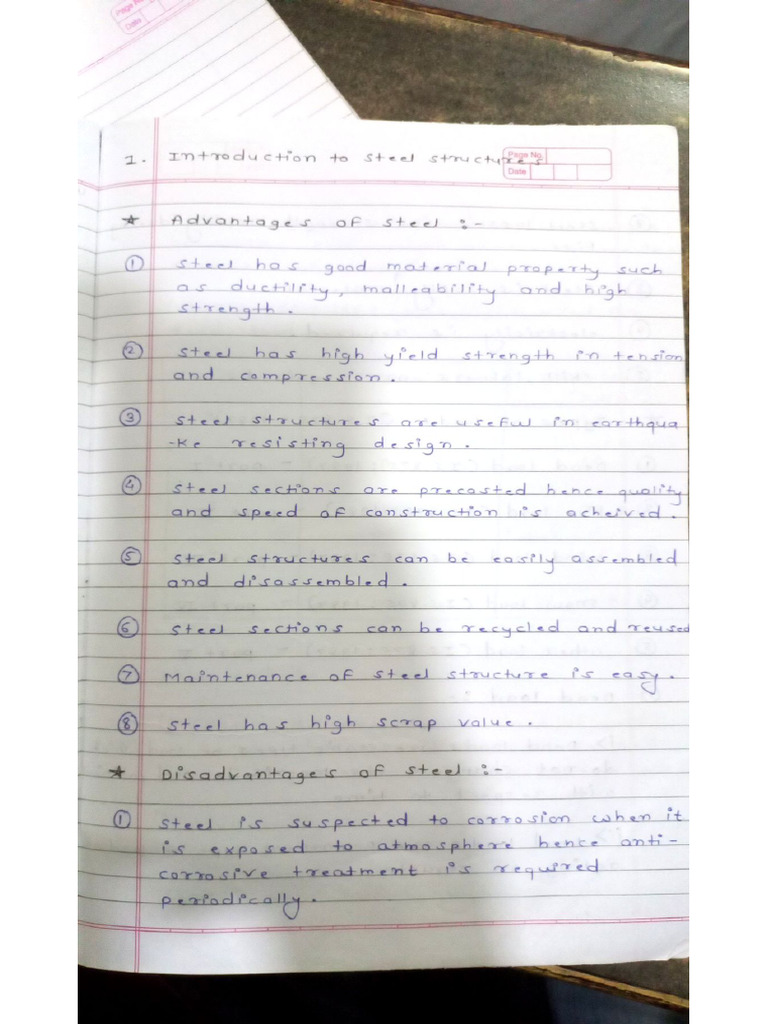 Page No.
Date
1. Introduction to steel structures
Page No.
Date
* Advantages of steel :-
① Steel has good material property such
as ductility, malleability and high
strength.
② Steel has high yield strength in tension
and compression.
③ Steel structures are useful in earthqua
-ke resisting design.
④ Steel sections are precasted hence quality
and speed of construction is acheived.
⑤ Steel structures can be easily assembled
and disassembled.
⑥ Steel sections can be recycled and reused
⑦ Maintenance of steel structure is easy.
⑧ Steel has high scrap value.
* Disadvantages of steel :-
① Steel is suspected to corrosion when it
is exposed to atmosphere hence anti-
corrosive treatment is required
periodically.